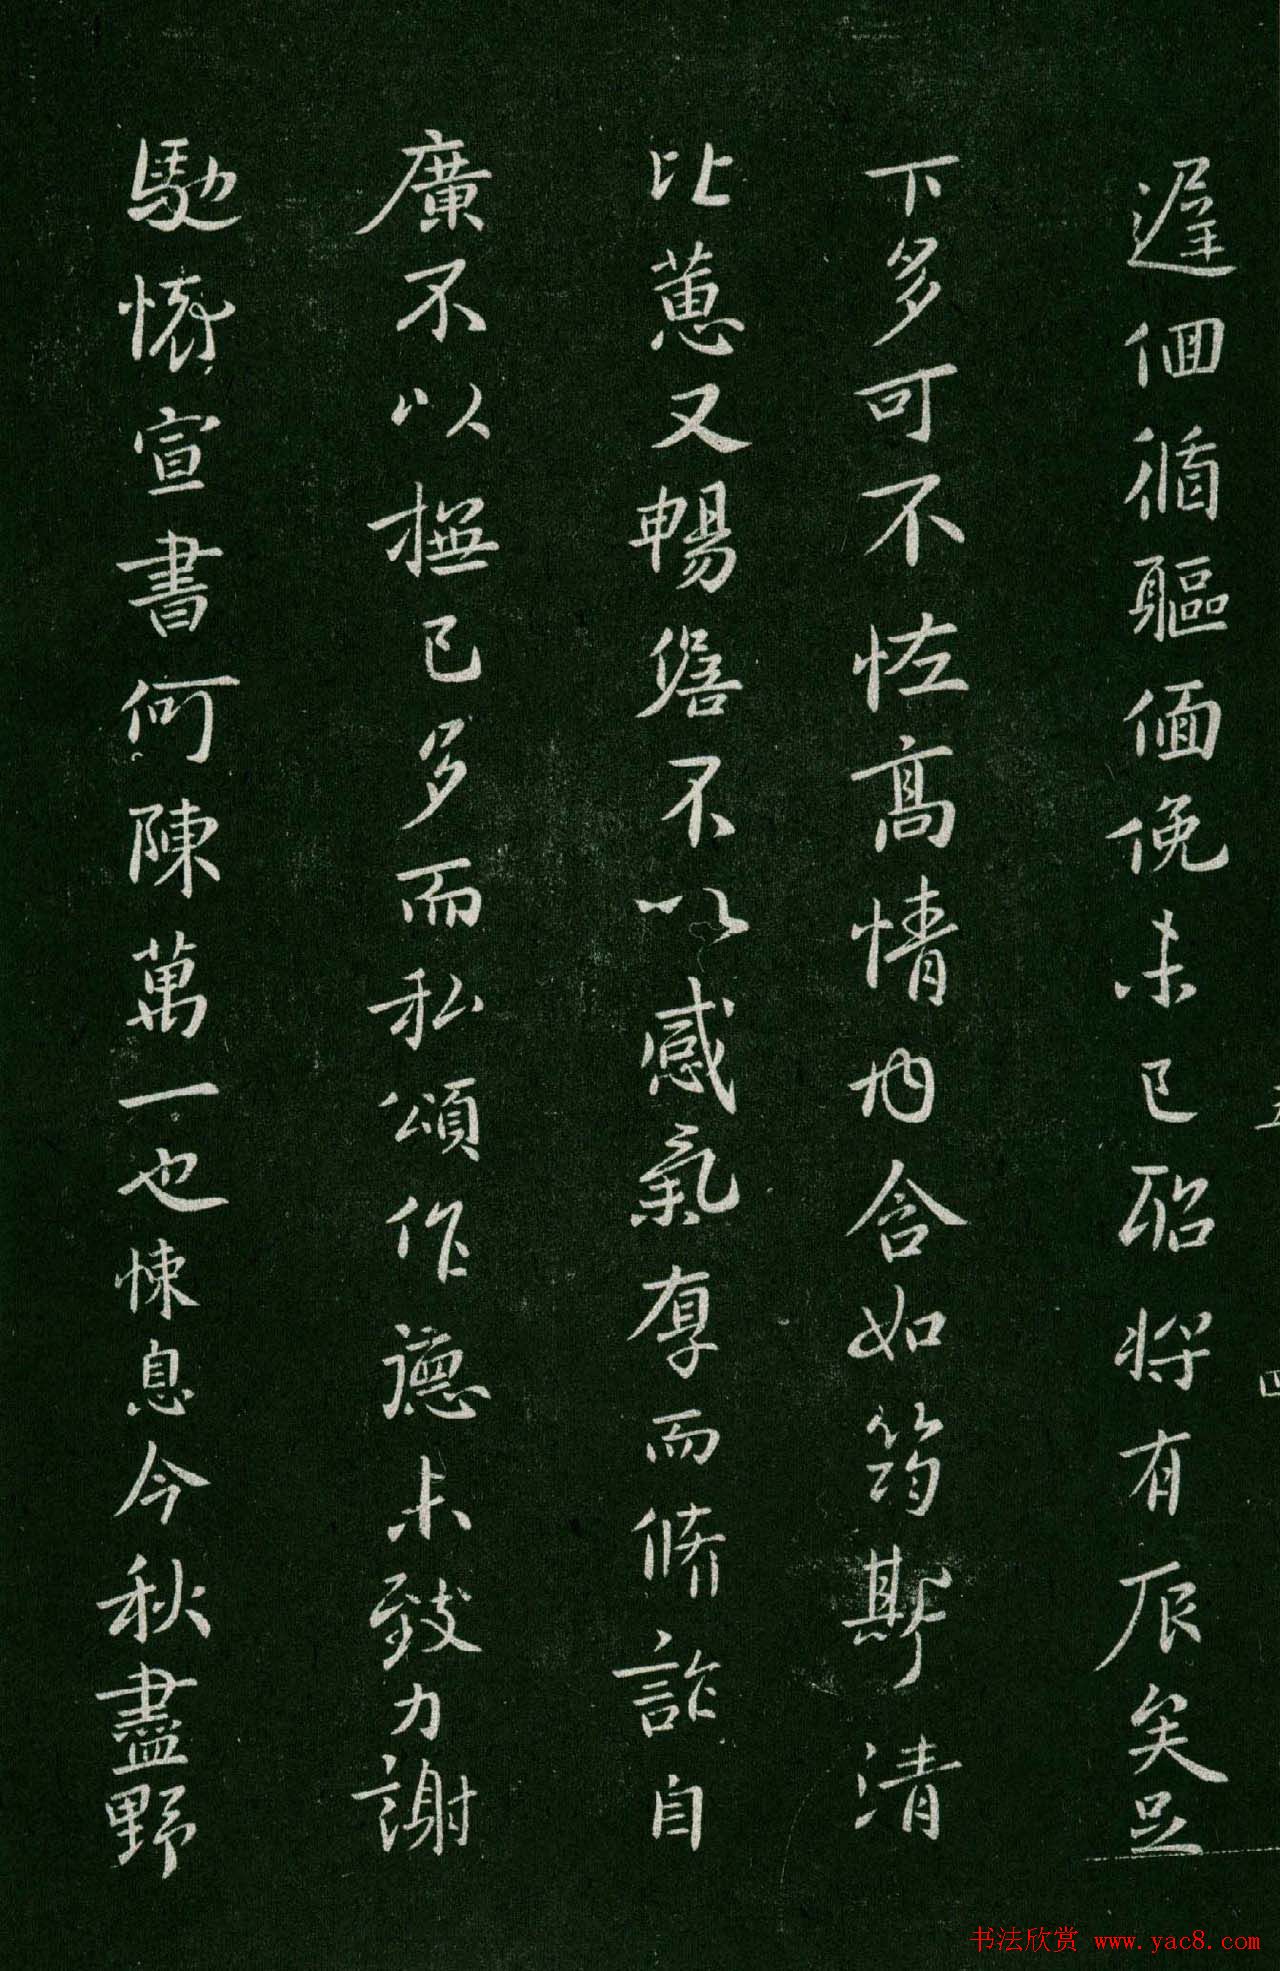 遲佪循軀偭俛未已聊將有辰矣足
下多可不怪高情內含如筠斯清
比蕙又暢儋不以感氣厚而脩詐自
廣不以撫已多而私頌作德未致力謝
馳懷宣書何陳萬一也悚息今秋盡野
书法欣赏 www.yac8.com